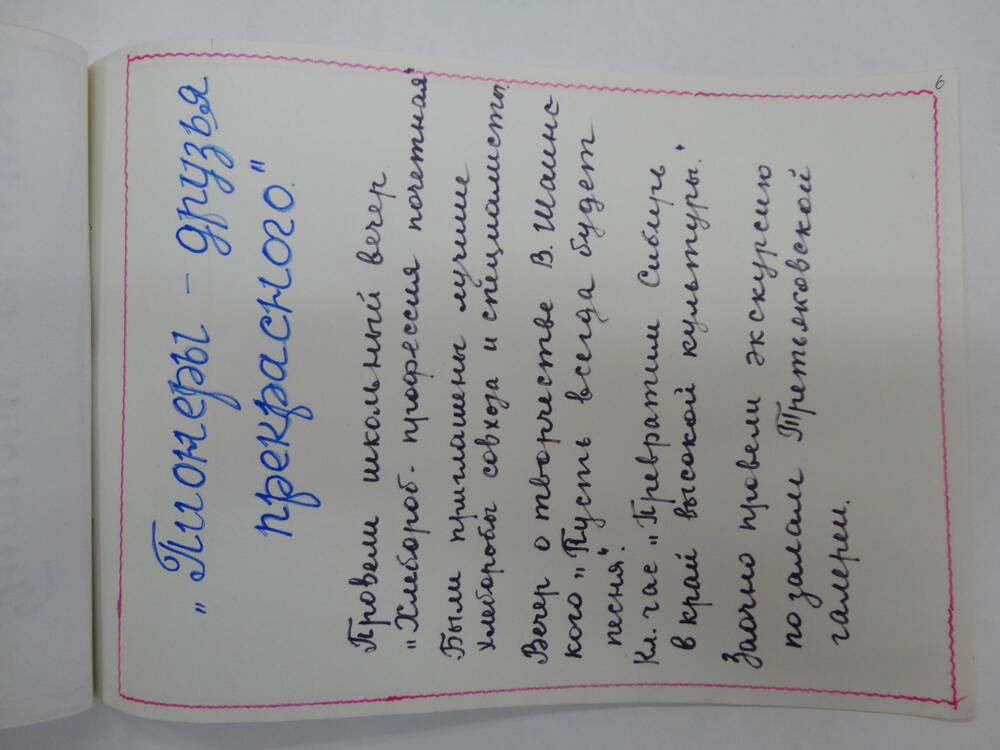 „Пионеры – друзья
прекрасного."
Провели школьный вечер
„Хлебороб - профессия почетная"
Были приглашены лучшие
хлеборобы совхоза и специалисты.
Вечер о творчестве В. Шаинс
кого „Пусть всегда будет
песня".
Кл. час „Превратим Сибирь
в край высокой культуры."
Заочно провели экскурсию
по залам Третьяковской
галереи.
6